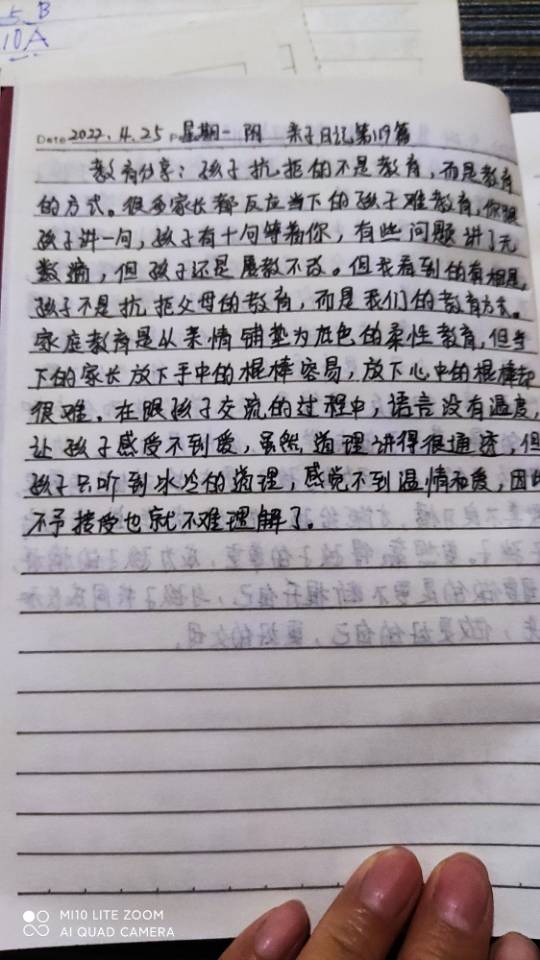 5 B
10A
Date 2022.4.25 星期一 阴 亲子日记第119篇
教育分享：孩子抗拒的不是教育，而是教育
的方式。很多家长都反应当下的孩子难教育，你跟
孩子讲一句，孩子有十句等着你，有些问题讲了无
数遍，但孩子还是屡教不改。但我看到的真相是，
孩子不是抗拒父母的教育，而是我们的教育方式。
家庭教育是从亲情铺垫为底色的柔性教育，但当
下的家长放下手中的棍棒容易，放下心中的棍棒却
很难。在跟孩子交流的过程中，语言没有温度，
让孩子感受不到爱，虽然道理讲得很通透，但
孩子只听到冰冷的道理，感觉不到温情和爱，因此
不予接受也就不难理解了。
MI10 LITE ZOOM
AI QUAD CAMERA